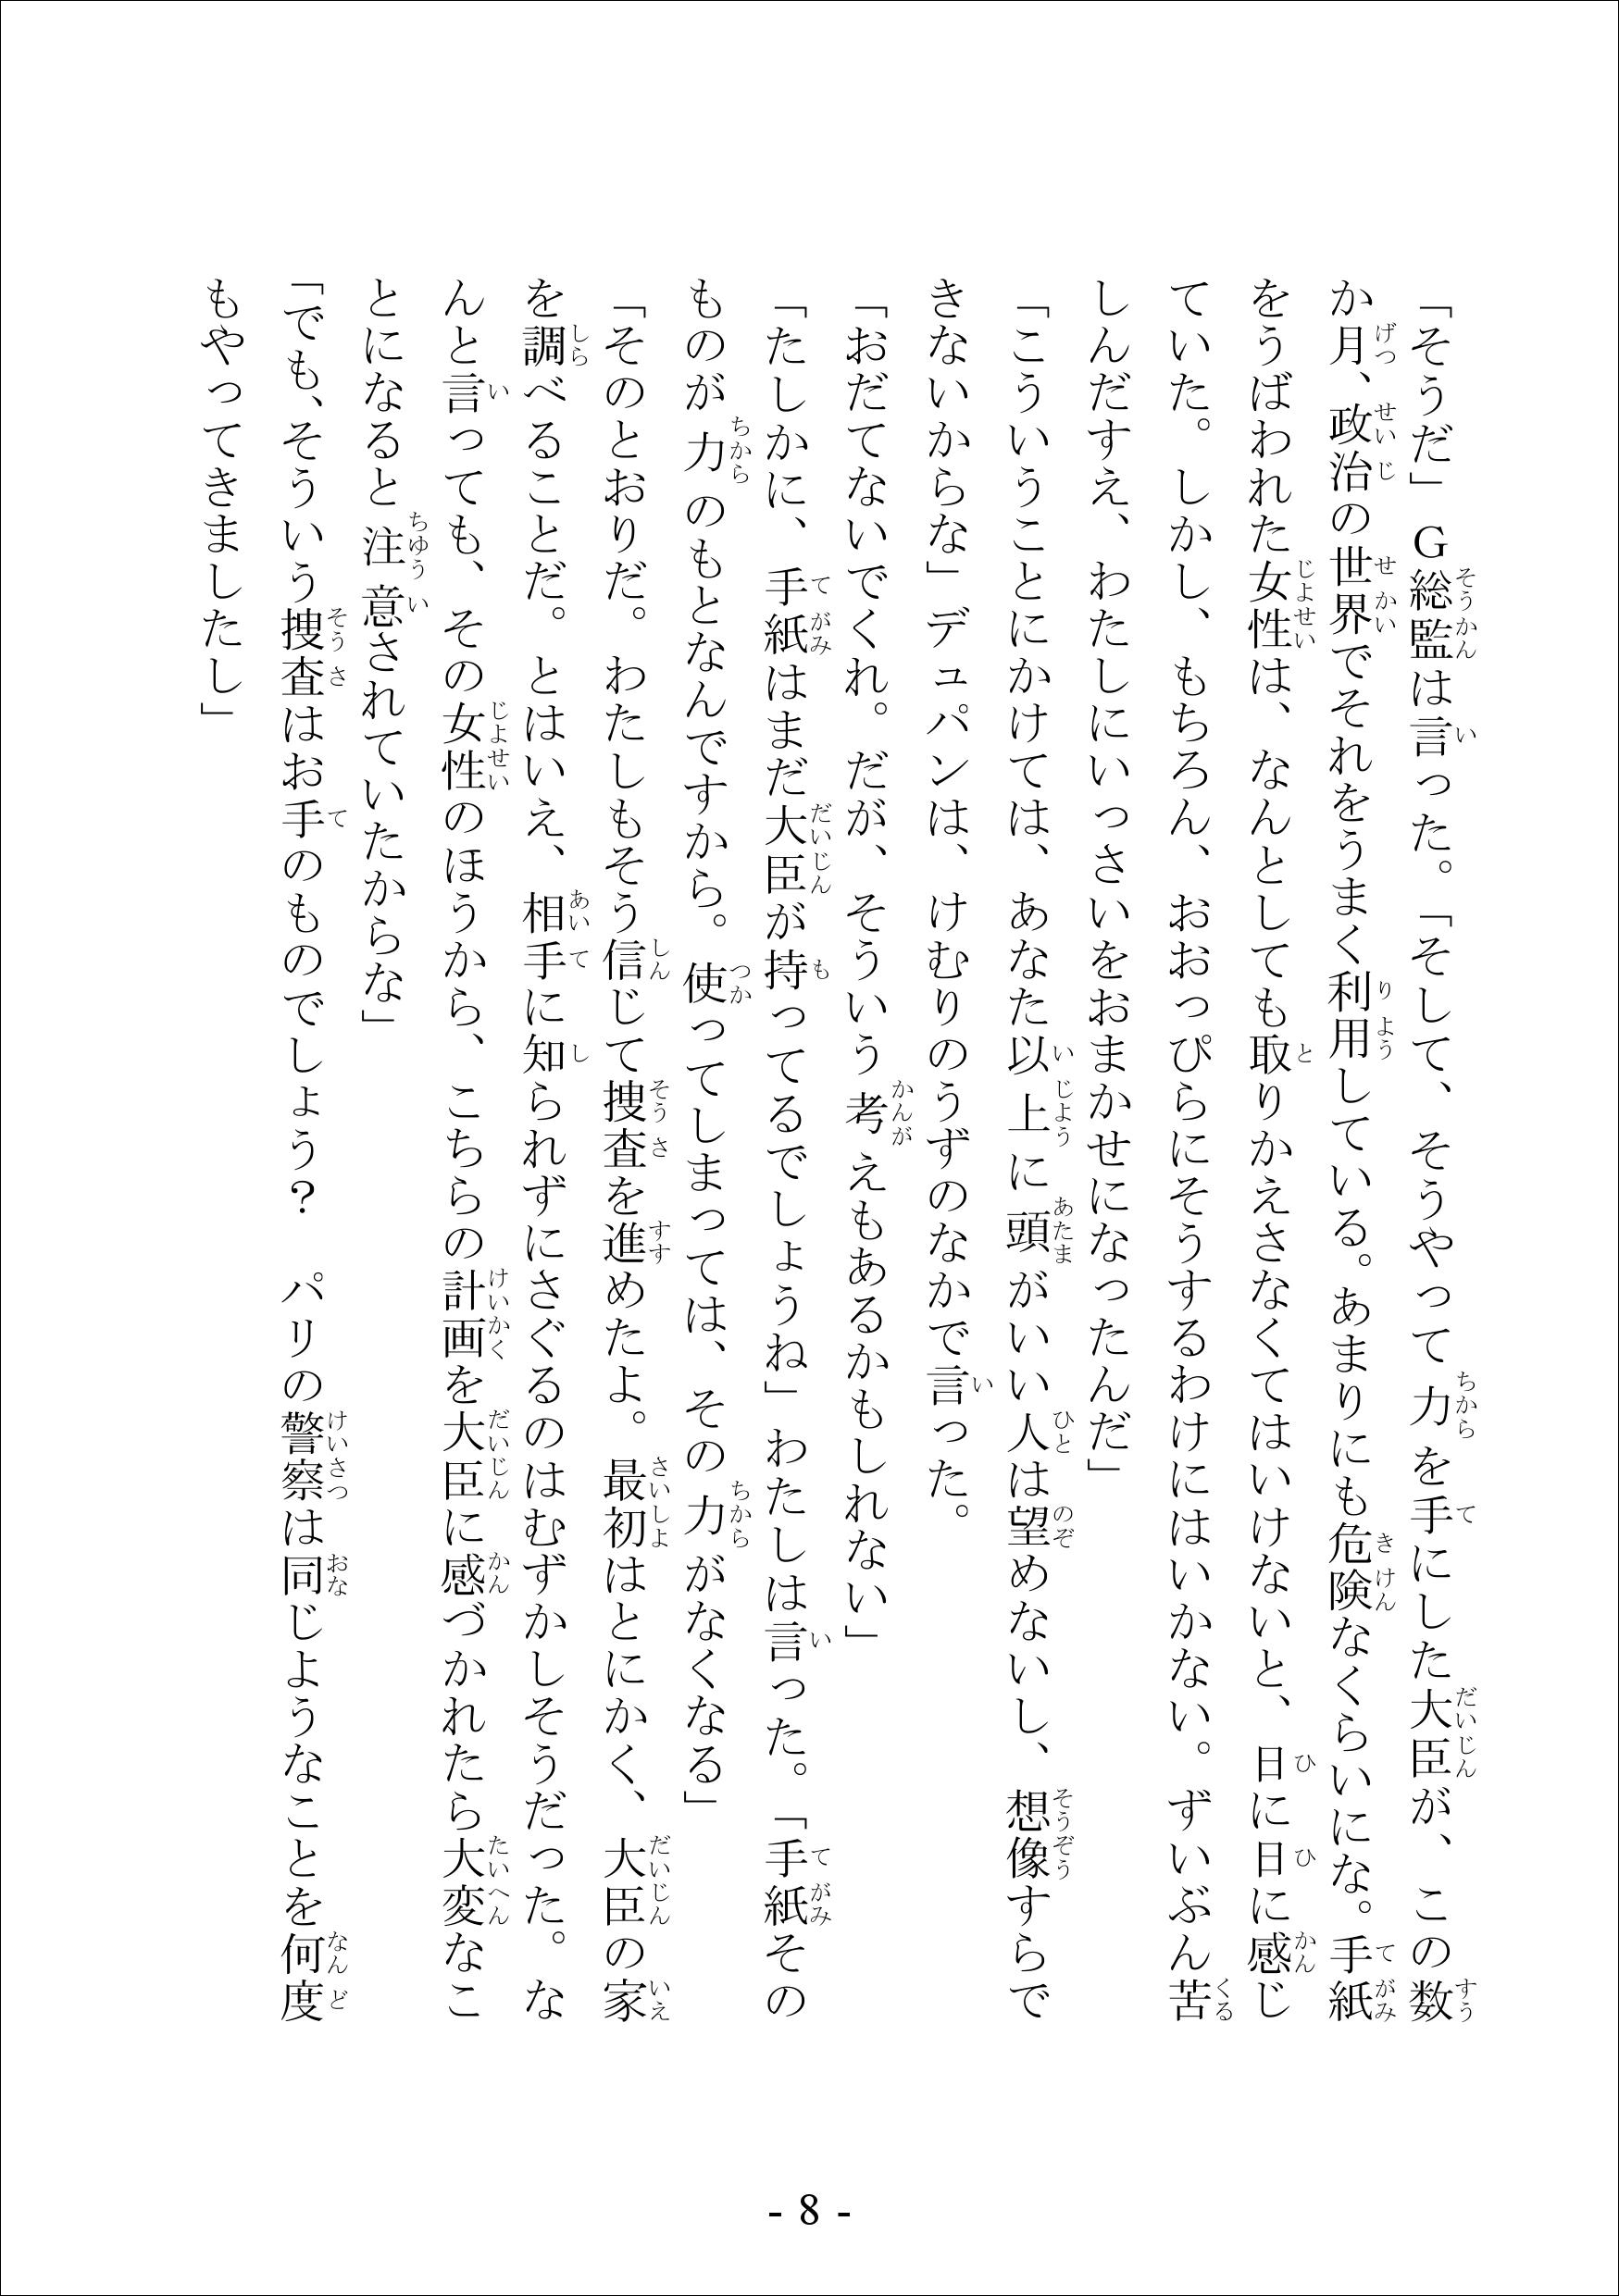 「そうだ」Ｇ総監は言った。「そして、そうやって力を手にした大臣が、この数
か月、政治の世界でそれをうまく利用している。あまりにも危険なくらいにな。手紙
をうばわれた女性は、なんとしても取りかえさなくてはいけないと、日に日に感じ
ていた。しかし、もちろん、おおっぴらにそうするわけにはいかない。ずいぶん苦
しんだすえ、わたしにいっさいをおまかせになったんだ」
「こういうことにかけては、あなた以上に頭がいい人は望めないし、想像すらで
きないからな」デュパンは、けむりのうずのなかで言った。
「おだてないでくれ。だが、そういう考えもあるかもしれない」
「たしかに、手紙はまだ大臣が持ってるでしょうね」わたしは言った。「手紙その
ものが力のもとなんですから。使ってしまっては、その力がなくなる」
「そのとおりだ。わたしもそう信じて捜査を進めたよ。最初はとにかく、大臣の家
を調べることだ。とはいえ、相手に知られずにさぐるのはむずかしそうだった。な
んと言っても、その女性のほうから、こちらの計画を大臣に感づかれたら大変なこ
とになると注意されていたからな」
「でも、そういう捜査はお手のものでしょう？　パリの警察は同じようなことを何度
もやってきましたし」
- 8 -